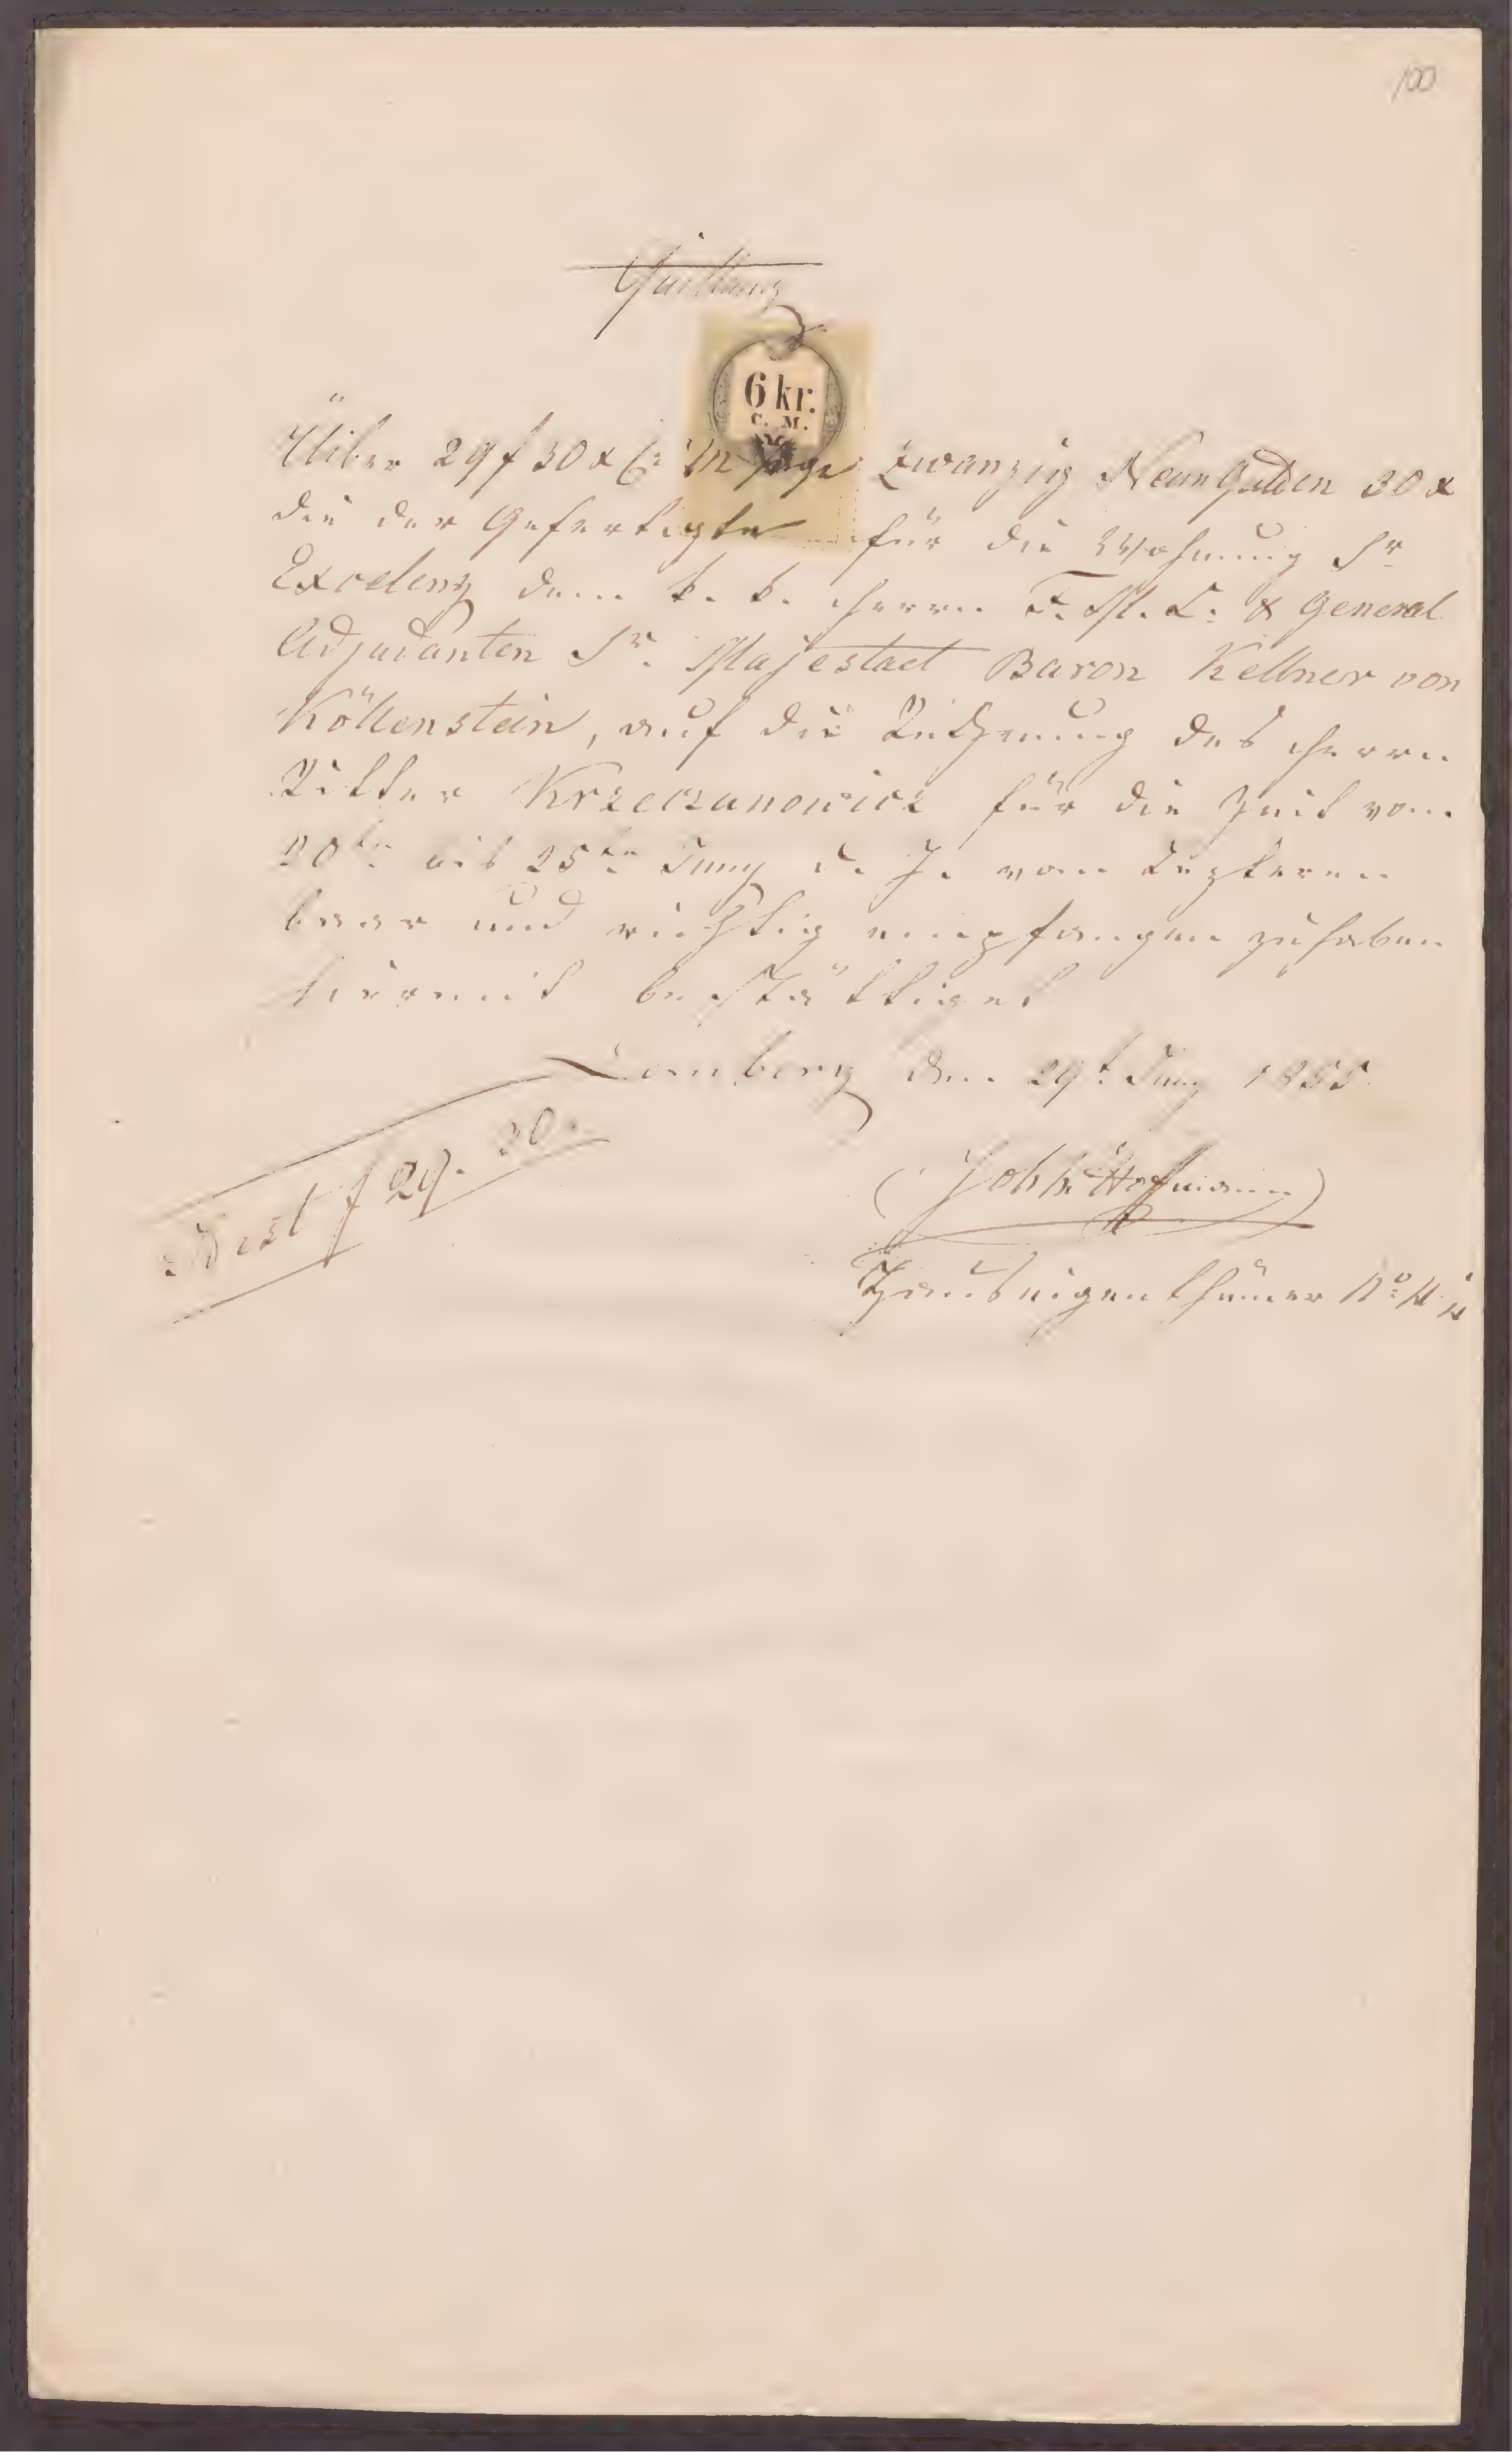 100
Quittung
6 kr.
C. M.
Über 29 f 30 x C: M: sage Zwanzig Neun Gulden 30 x
die der Gefertigte für die Wohnung Sr
Excelenz dem k. k. Herrn F. M. L. & General
Adjudanten Sr. Majestaet Baron Kellner von
Köllenstein, auf die Rechnung des Herrn
Ritter Krzeczunowicz für die Zeit vom
20ten bis 25ten Juny d. J. vom Letzteren
baar und richtig empfangen zu haben
hiermit bestättiget
Lemberg den 29t Juny 1855
Idest f 29. 30.
Joh. Hofmann
Hauseigenthümer No